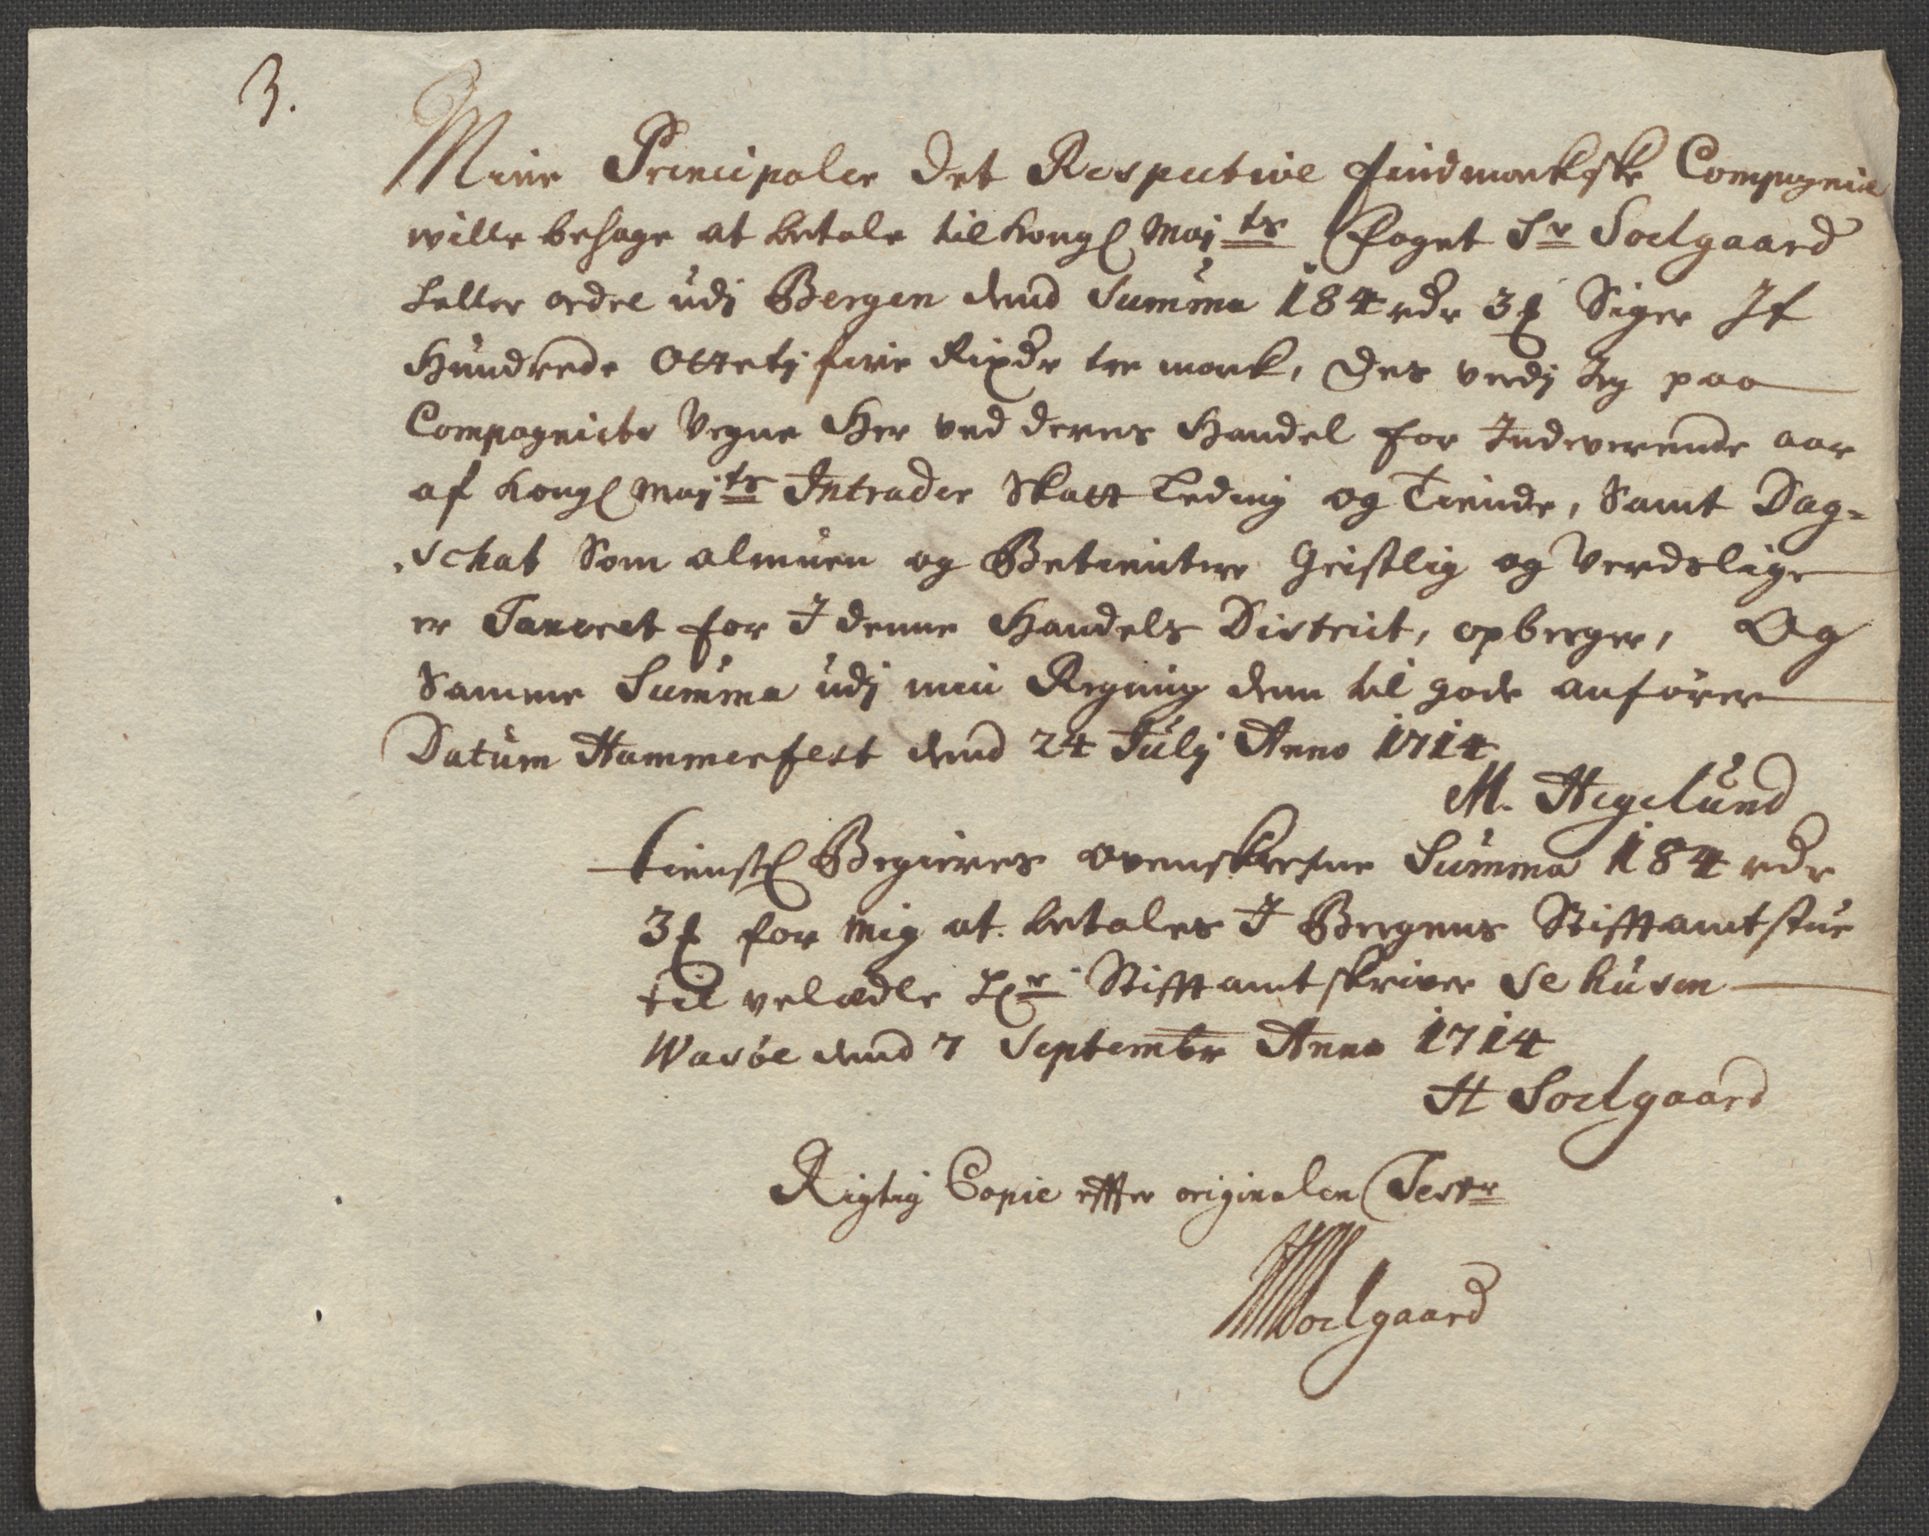 3.
Mine Principaler det Respective findmarkske Compagnie
wille behage at betale til Kongl Majts Foget Sr Soelgaard
heller ordre udj Bergen dend Summa 184 rdr 3 ℔ Siger Jt
Hundrede Ottetj fire Rixdr tre mark, Des verdj Jeg paa
Compagniets Vegne Her ved deres Handel for Indeverende aar
af Kongl Majts Intrader Skatt Leding og Tiende, Samt Dag-
schat Som almuen og Betientere Geistlig og Verdslige
er Taxeret for I denne Handels District, opberger, Og
Samme Summa udj min Regning dem til gode anfører
Datum Hammerfest dend 24 Julj Anno 1714
M. Hegelund
tienstl Begieres ovenskrefne Summa 184 rdr
3 ℔ for mig at betales I Bergens Stifftamtstue
til velædle Hr Stifftamtskriver Sehusen
Wasöe dend 7 Septembr Anno 1714
H Soelgaard
Rigtig Copie effter originalen Tester
HSoelgaard